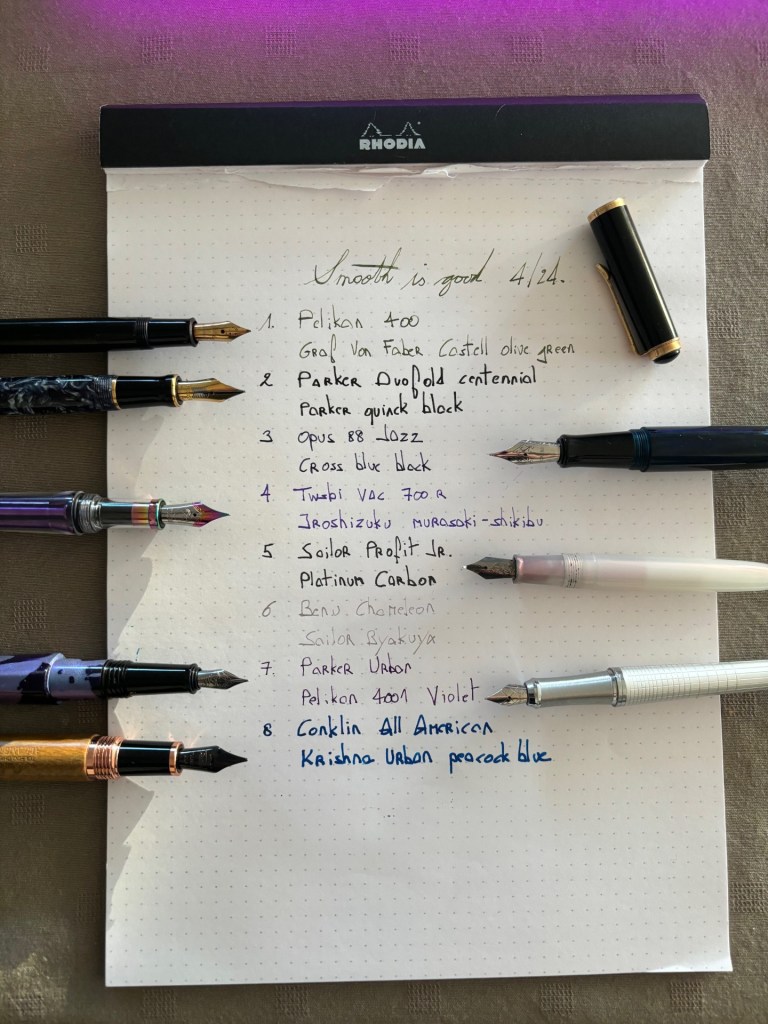 RHODIA
Smooth is good 4/24.
1. Pelikan 400
Graf Von Faber Castell olive green
2 Parker Duofold centennial
Parker quinck black
3 Opus 88 Jazz
Cross blue black
4 Twsbi Vac 700 R
Iroshizuku murasaki-shikibu
5 Sailor Profit Jr.
Platinum Carbon
6 Benu Chameleon
Sailor Byakuya
7. Parker Urban
Pelikan 4001 Violet
8 Conklin All American
Krishna Urban peacock blue